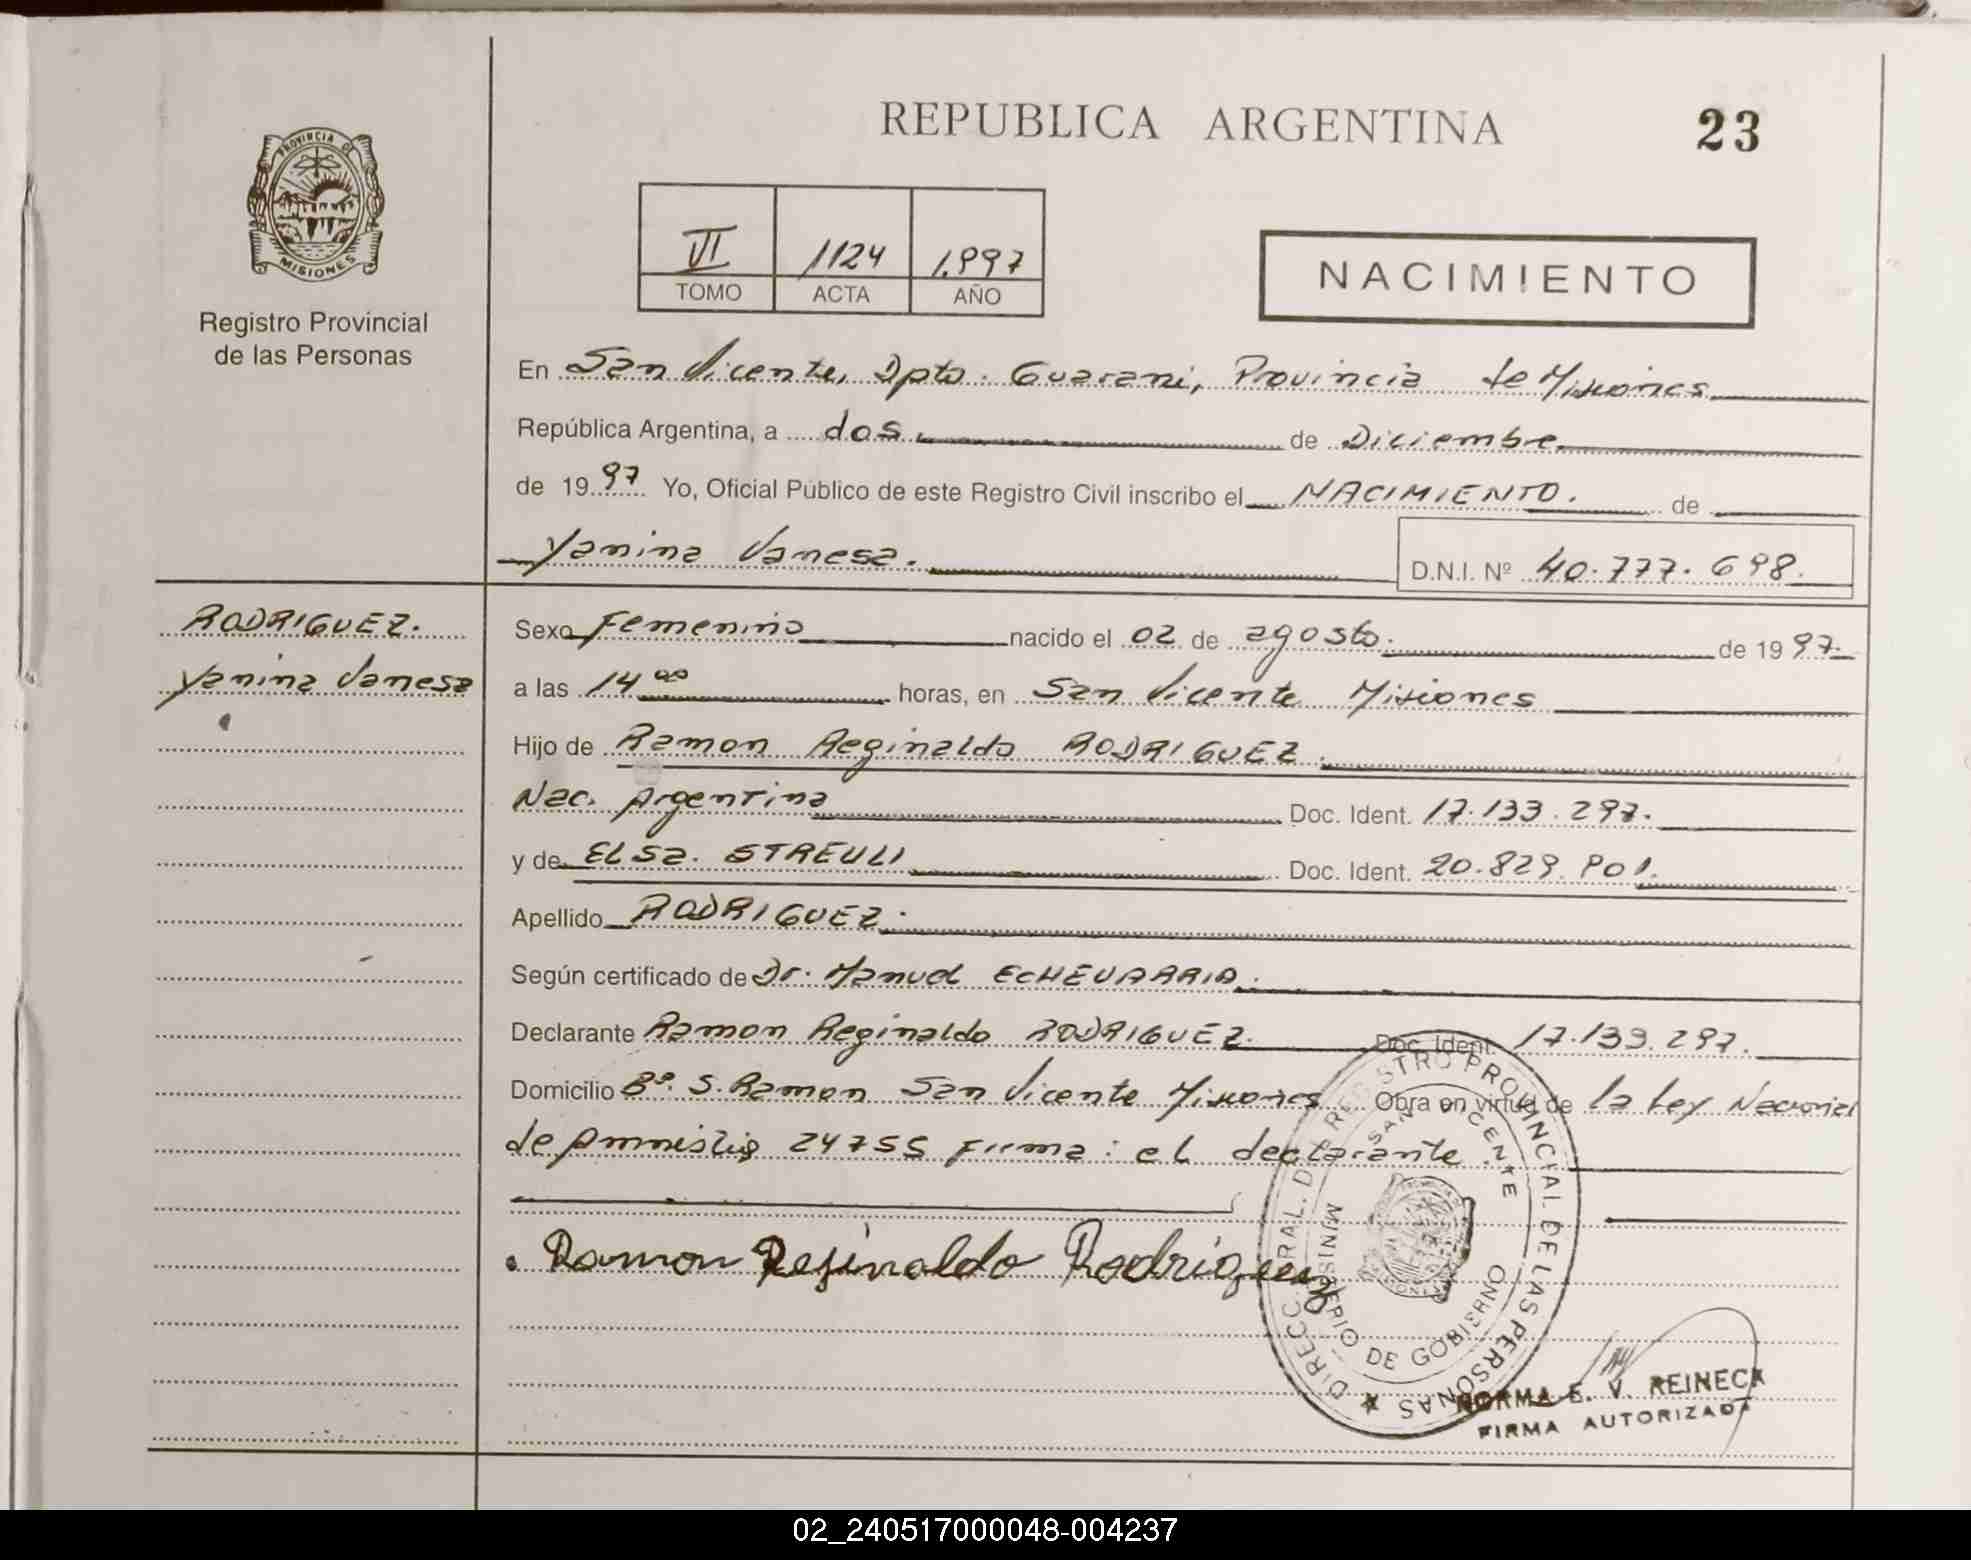 REPUBLICA ARGENTINA
23
PROVINCIA DE
MISIONES
Registro Provincial
de las Personas
VI 1124 1.997
TOMO ACTA AÑO
NACIMIENTO
En San Vicente, Dpto. Guarani, Provincia de Misiones
República Argentina, a dos de Diciembre
de 1997 Yo, Oficial Público de este Registro Civil inscribo el NACIMIENTO. de
Yanina Vanesa. D.N.I. Nº 40.777.698.
RODRIGUEZ.
Yanina Vanesa
Sexo Femenino nacido el 02 de agosto. de 1997.
a las 14 00 horas, en San Vicente Misiones
Hijo de Ramon Reginaldo RODRIGUEZ
Nac. Argentina Doc. Ident. 17.133.297.
y de ELSA. STREULI Doc. Ident. 20.829.901.
Apellido RODRIGUEZ.
Según certificado de Dr. Manuel ECHEVARRIA.
Declarante Ramon Reginaldo RODRIGUEZ. Doc. Ident. 17.133.297.
Domicilio Bº. S. Ramon San Vicente Misiones Obra en virtud de la Ley Nacional
de Amnistia 24755 Firma: el declarante.
Ramon Rejinaldo Rodriguez
DIRECC. GRAL. DEL REGISTRO PROVINCIAL DE LAS PERSONAS
SAN VICENTE
MINISTERIO DE GOBIERNO
NORMA E. V. REINECK
FIRMA AUTORIZADA
02_240517000048-004237